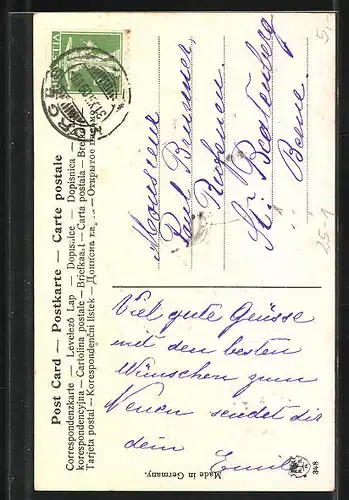 Post Card — Postkarte — Carte postale
Correspondenzkarte — Levelező Lap — Dopisnice — Dopisnica —
korespondencyjna — Cartolina postale — Briefkaart — Carta postala —
Tarjeta postal — Korespondenční listek —
HELVETIA
Monsieur
Paul Brunner
St. Beatenberg
Berne
5,-
25-1
Viel gute Grüsse
mit den besten
Wünschen zum
Neuen sendet dir
dein Emil
Made in Germany.
348